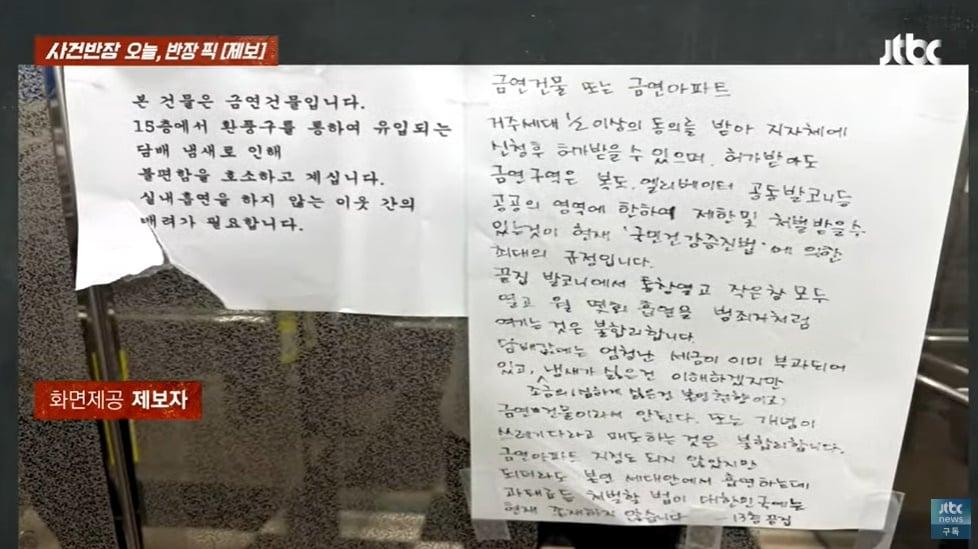 사건반장 오늘, 반장 픽 [제보]
jtbc
본 건물은 금연건물입니다.
15층에서 환풍구를 통하여 유입되는
담배 냄새로 인해
불편함을 호소하고 계십니다.
실내흡연을 하지 않는 이웃 간의
배려가 필요합니다.
금연건물 또는 금연아파트
거주세대 ½ 이상의 동의를 받아 지자체에
신청후 허가받을 수 있으며, 허가받아도
금연구역은 복도, 엘리베이터 공동발코니등
공공의 영역에 한하여 제한및 처벌받을수
있는것이 현재 '국민건강증진법'에 의한
최대의 규정입니다.
끝집 발코니에서 통창열고 작은창 모두
열고 월 몇회 흡연을 범죄자처럼
여기는 것은 불합리합니다.
담배값에는 엄청난 세금이 이미 부과되어
있고, 냄새가 싫은건 이해하겠지만
싫은건
금연건물이라서 안된다. 또는 개념이
쓰레기다라고 매도하는 것은 불합리합니다.
금연아파트 지정도 되지 않았지만
되더라도 본연 세대안에서 흡연하는데
과태료등 처벌할 법이 대한민국에는
현재 존재하지 않습니다 - 13층 끝집
화면제공 제보자
jtbc
news
구독